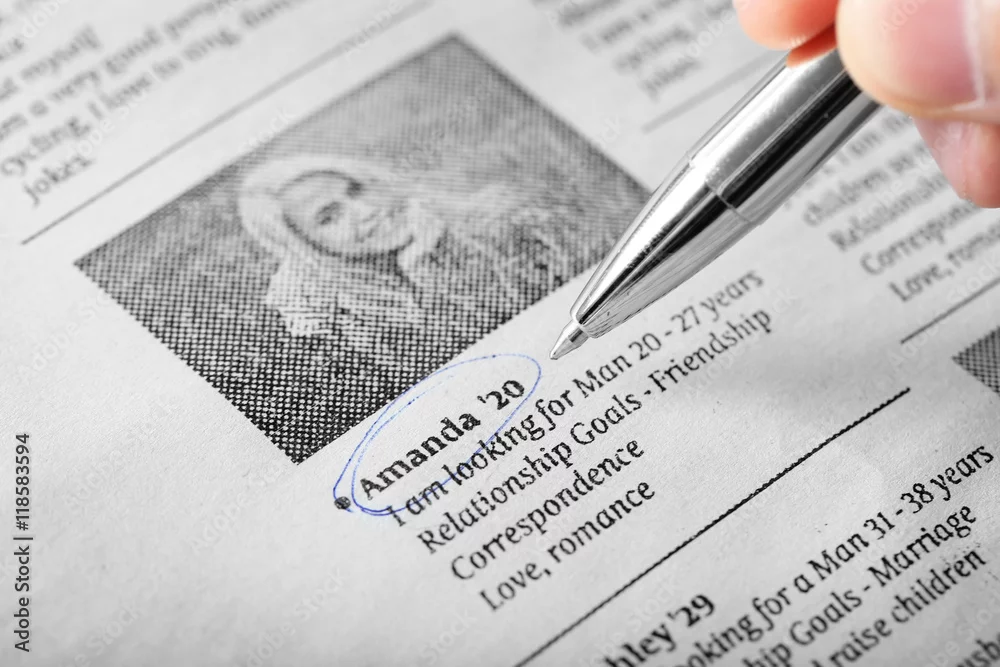 myself
a very good person
cycling, I love to sing,
jokes
cycling
jokes
children
Relationship
Correspon
Love, roman
• Amanda '20
I am looking for Man 20 - 27 years
Relationship Goals - Friendship
Correspondence
Love, romance
hley '29
oking for a Man 31 - 38 years
ship Goals - Marriage
raise children
Adobe Stock | #118583594